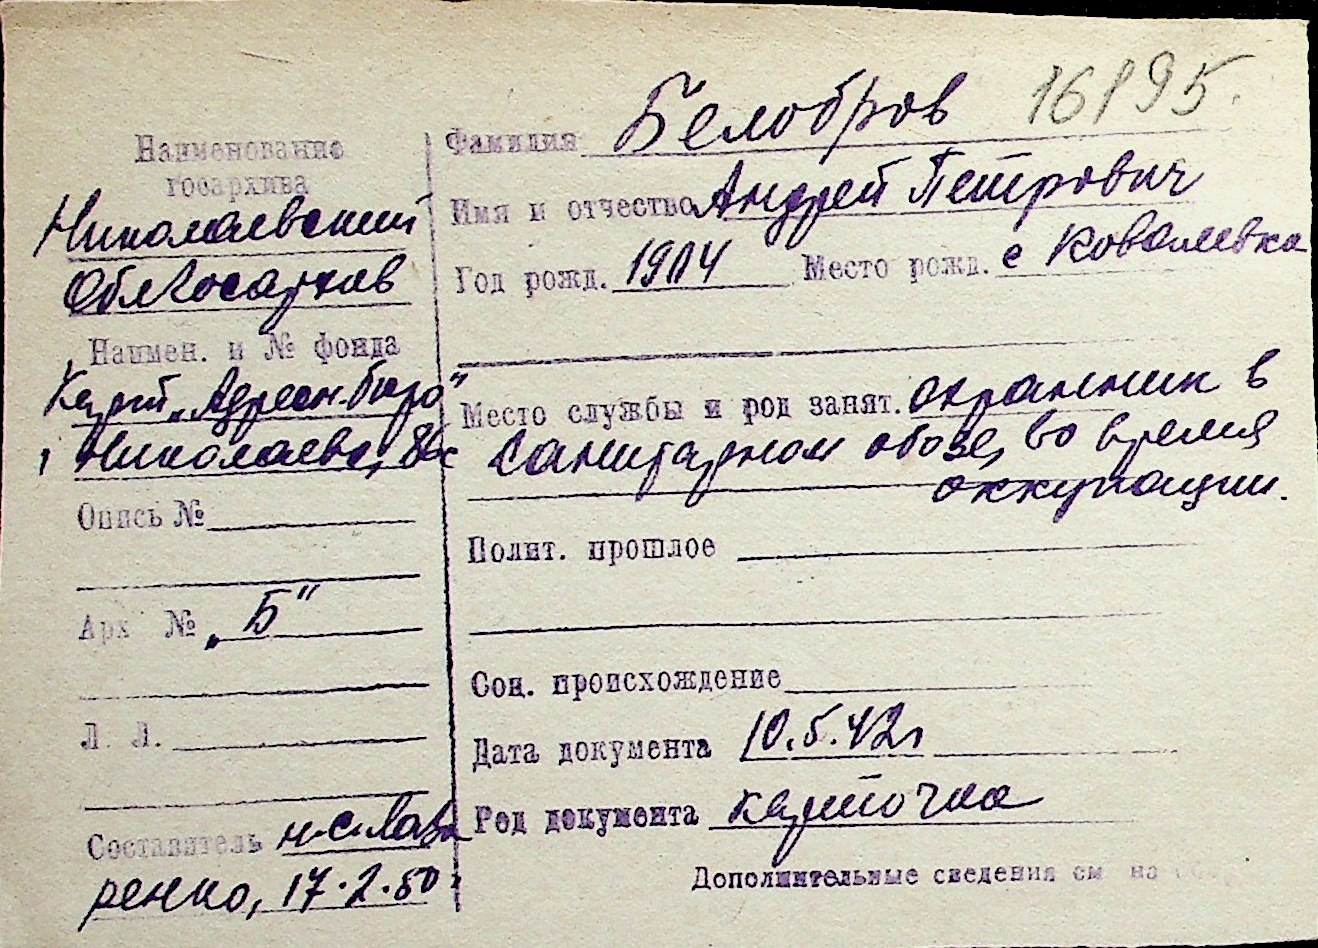 16195.
Наименование
госархива
Николаевский
Облгосархив
Наимен. и № фонда
Карт. „Адресн. бюро"
г Николаева,
Опись №
Арх №
„Б"
Л. Л.
Составитель н-с-Лав
ренко, 17.2.50г
Фамилия Белобров
Имя и отчество Андрей Петрович
Год рожд. 1904 Место рожд. с Ковалевка
Место службы и род занят. охранник в
Санитарном обозе, во время
оккупации.
Полит. прошлое
Соц. происхождение
Дата документа 10.5.42г
Род документа карточка
Дополнительные сведения см на